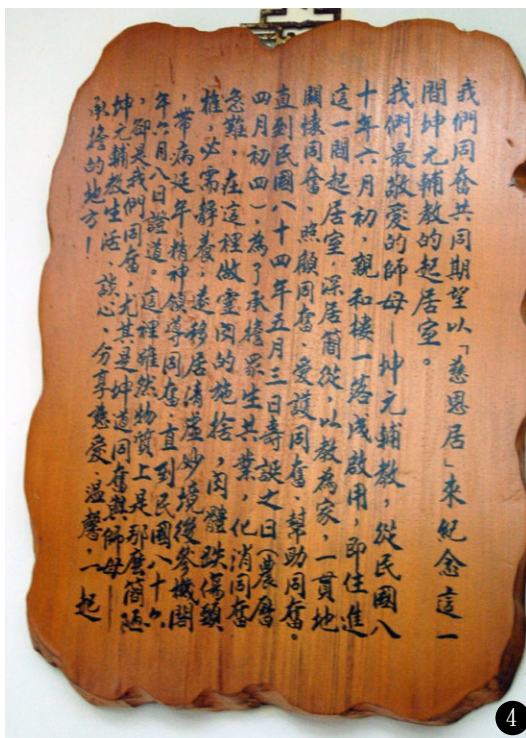 我們同奮共同期望以「慈恩居」來紀念這一
間坤元輔教的起居室。
我們最敬愛的師母─坤元輔教，從民國八
十年六月初，親和樓一落成啟用，即住進
這一間起居室，深居簡從，以教為家，一貫地
關懷同奮、照顧同奮、愛護同奮、幫助同奮。
直到民國八十四年五月三日壽誕之日（農曆
四月初四），為了承擔眾生共業，化消同奮
急難，在這裡做靈肉的施捨，肉體跌傷頸
椎，必需靜養，遠移居清虛妙境後參機閣
，帶病延年，精神領導同奮，直到民國八十六
年六月八日證道。這裡雖然物質上是那麼簡陋
，卻是我們同奮，尤其是坤道同奮與師母
坤元輔教生活、談心、分享慈愛、溫馨，一起
承擔的地方！
4